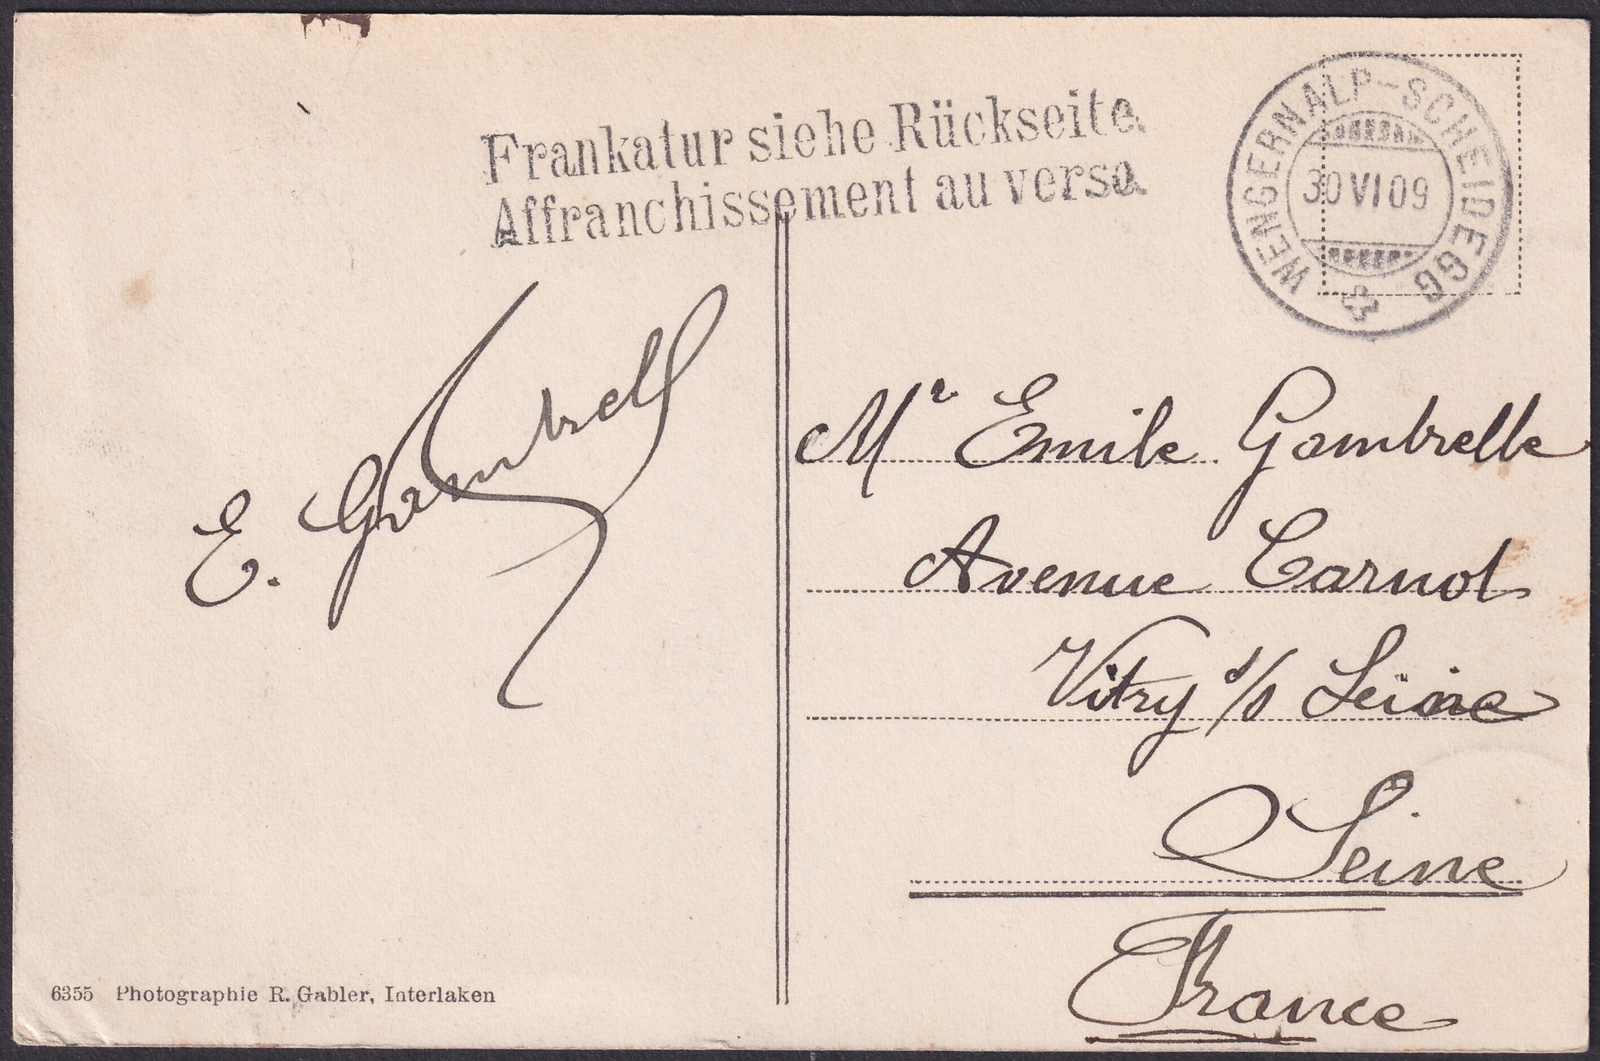 Frankatur siehe Rückseite.
Affranchissement au verso.
WENGERNALP-SCHEIDEGG
30 VI 09
E. Gambrell
Mr Emile Gambrelle
Avenue Carnot
Vitry s/s Seine
Seine
France
6355 Photographie R. Gabler, Interlaken